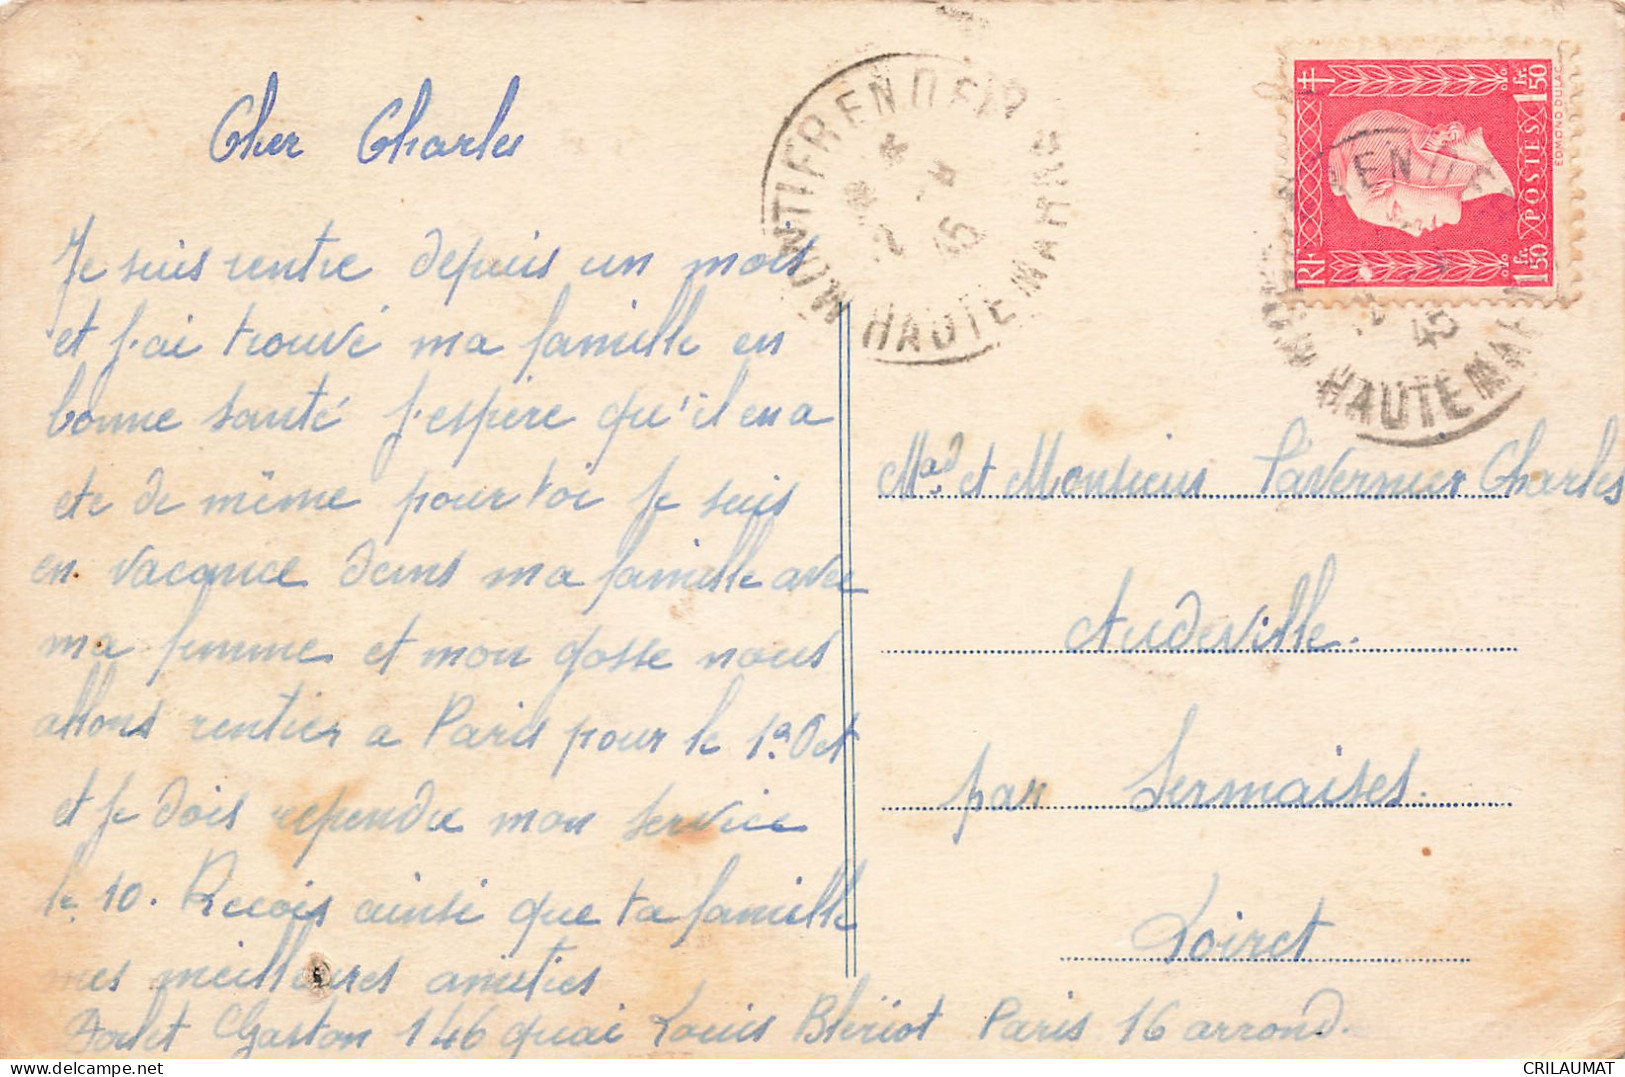 Cher Charles
Je suis rentre depuis un mois
et j'ai trouvé ma famille en
bonne santé j'espère qu'il en a
ete de même pour toi je suis
en vacance dans ma famille avec
ma femme et mon gosse nous
allons rentrer a Paris pour le 1er Oct
et je dois rependre mon service
le 10. Recois ainsi que ta famille
mes meilleures amities
Gaston 146 quai Louis Blériot Paris 16 arrond.
MONTIERENDER
HAUTE MARNE
45
RF
1fr.50 POSTES 1fr.50
EDMOND DULAC
HAUTE MAR
45
Mad et Monsieur Tavernier Charles
Audeville.
par Sermaises.
Loiret
CRILAUMAT